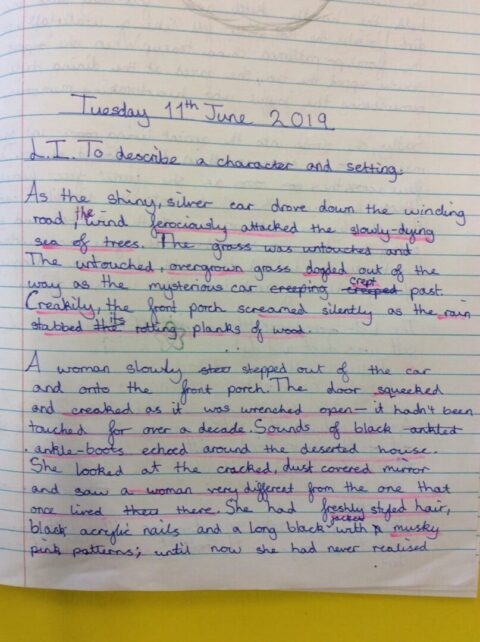 Tuesday 11th June 2019
L.I. To describe a character and setting.
As the shiny, silver car drove down the winding
road, the wind ferociously attacked the slowly-dying
sea of trees. The grass was untouched and
The untouched, overgrown grass dogded out of the
way as the mysterious car creeping creeped crept past.
Creakily, the front porch screamed silently as the rain
stabbed the its rotting planks of wood.
A woman slowly stepped out of the car
and onto the front porch. The door squecked
and creaked as it was wrenched open - it hadn't been
touched for over a decade. Sounds of black ankled
ankle-boots echoed around the deserted house.
She looked at the cracked, dust covered mirror
and saw a woman very different from the one that
once lived there. She had freshly styled hair,
black acrylic nails and a long black jacket with musky
pink patterns; until now she had never realised